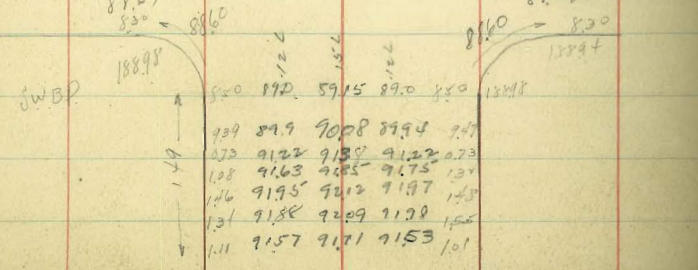 8.30 8860 8860 8.30
188.98 .122 .152 .122 188.94
SWBP 8.50 89.0 89.15 89.0 8.50 188.98
9.39 89.9 90.08 89.94 9.47
0.73 91.22 91.38 91.22 0.73
149 1.08 91.63 91.85 91.75
1.46 91.95 92.12 91.97 1.48
1.31 91.88 92.09 91.98 1.55
1.11 91.57 91.71 91.53 1.01